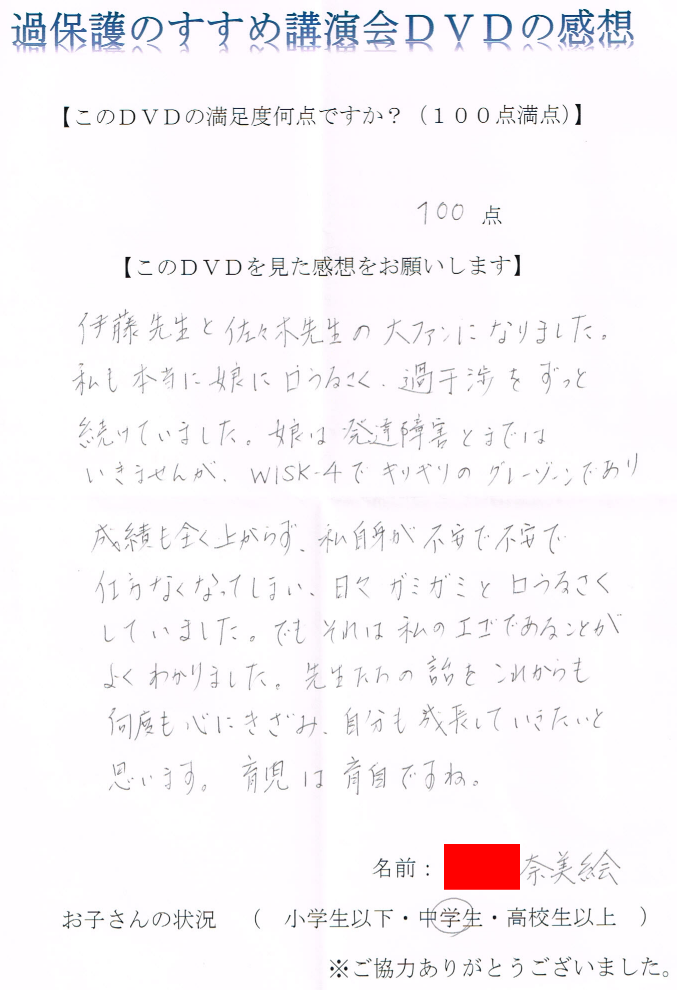 過保護のすすめ講演会DVDの感想
【このDVDの満足度何点ですか?(100点満点)】
100 点
【このDVDを見た感想をお願いします】
伊藤先生と佐々木先生の大ファンになりました。
私も本当に娘に口うるさく、過干渉をずっと
続けていました。娘は発達障害とまでは
いきませんが、WISK-4でギリギリのグレーゾーンであり
成績も全く上がらず、私自身が不安で不安で
仕方なくなってしまい、日々ガミガミと口うるさく
していました。でもそれは私のエゴであることが
よくわかりました。先生たちの話をこれからも
何度も心にきざみ、自分も成長していきたいと
思います。育児は育自ですね。
名前: 奈美絵
お子さんの状況 ( 小学生以下・中学生・高校生以上 )
※ご協力ありがとうございました。